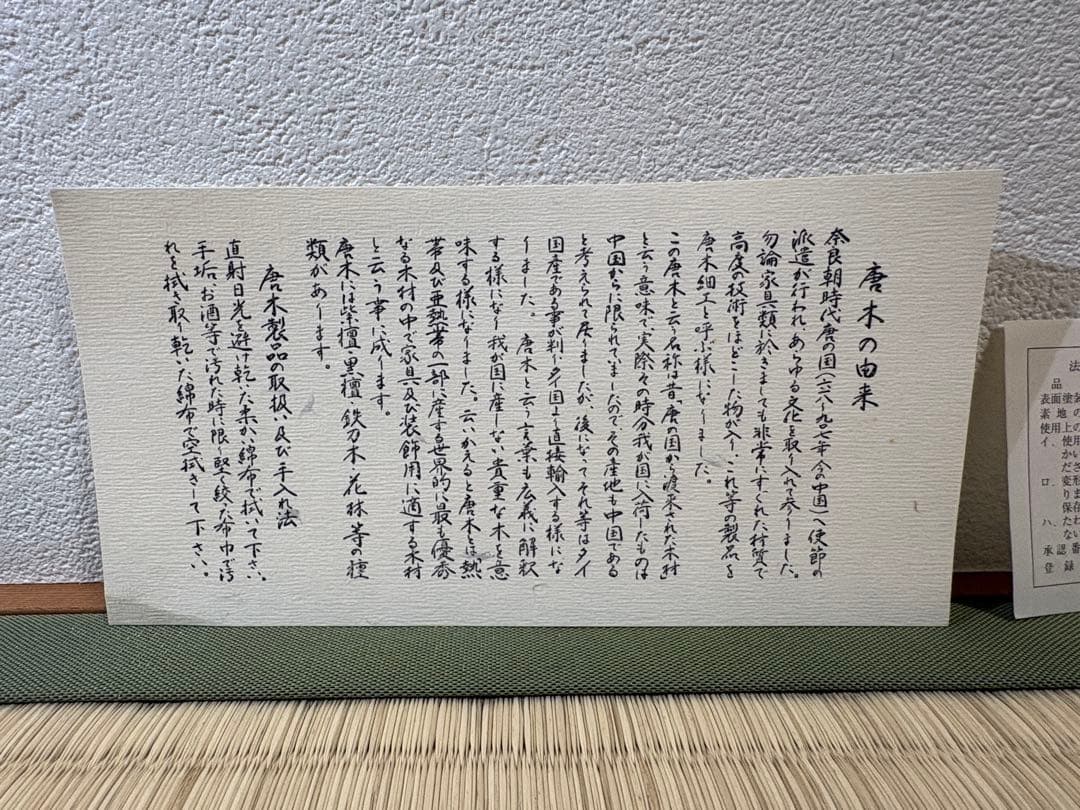 唐木の由来
奈良朝時代唐の国(六一八〜九〇七年今の中国)へ使節の
派遣が行われ、あらゆる文化を取り入れて参りました。
勿論家具類に於きましても非常にすぐれた材質で
高度の技術をほどこした物が入り、これ等の製品を
唐木細工と呼ぶ様になりました。
この唐木と云う名称は昔、「唐の国から渡来された木材」
と云う意味で、実際その時分我が国に入荷したものは
中国からに限られていましたので、その産地も中国である
と考えられて居りましたが、後になってそれ等はタイ
国産である事が判り、タイ国より直接輸入する様にな
りました。 唐木と云う言葉も広義に解釈
する様になり、我が国に産しない貴重な木を意
味する様になりました。云いかえると唐木とは、熱
帯及び亜熱帯の一部に産する世界的に最も優秀
なる木材の中で家具及び装飾用に適する木材
と云う事に成ります。
唐木には紫檀・黒檀・鉄刀木・花林等の種
類があります。
唐木製品の取扱い及び手入れ法
直射日光を避け乾いた柔かい綿布で拭いて下さい。
手垢、お酒等で汚れた時に限り堅く絞った布巾で汚
れを拭き取り乾いた綿布で空拭きして下さい。
法
品
表面塗装
素地の
使用上の
イ、使用
かい
ださ
ロ、変形
りま
保存
ハ、たわ
ない
承認番
登録